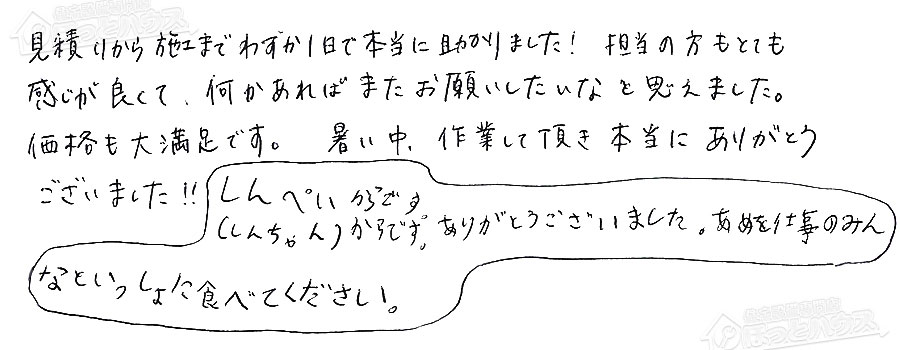 見積りから施工までわずか1日で本当に助かりました! 担当の方もとても
感じが良くて、何かあればまたお願いしたいなと思えました。
価格も大満足です。 暑い中、作業して頂き本当にありがとう
ございました!!
しんぺいからです
(しんちゃん)からです。ありがとうございました。あめを仕事のみん
なといっしょに食べてください。
ほっとハウス
ほっとハウス